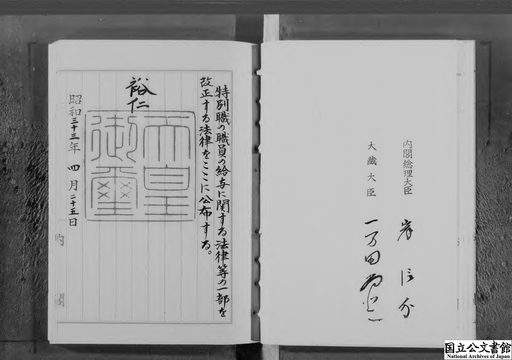 特別職の職員の給与に関する法律等の一部を
改正する法律をここに公布する。
裕仁
天皇
御璽
昭和三十三年四月二十五日
内閣
内閣総理大臣 岸信介
大蔵大臣 一万田尚登
国立公文書館
National Archives of Japan